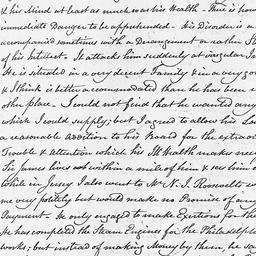 & his Mind at least as much as on his Health – There is how
immediate Danger to be apprehended – His Disorder is a
accompanied sometimes with a Derangement or rather St
of his Intellect. It attacks him suddenly at irregular In
He is situated in a very decent Family & in a very go
& I think is better accommodated than he has been
other place. I could not find that he wanted any
which I could supply; but I agreed to allow his La
a reasonable addition to his Board for the extraor
Trouble & Attention which his Ill Health makes nece
Sir James lives not within a mile of him & sees him
while in Jersey I also went to Mr N. I. Roosevelt w
me very politely but would make no Promise of any
Payment. He only engaged to make Exertions for the
He has completed the Steam Engines for the Philadelph
works; but instead of making Money by them, he sa